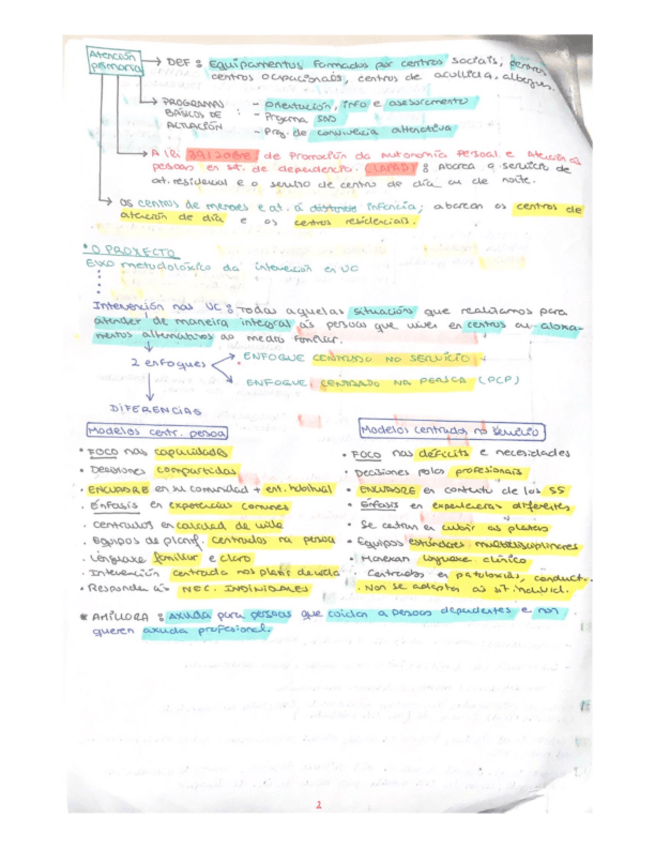 Atención primaria
→ DEF: Equipamentos formados por centros sociais, centros
centros ocupacionais, centros de acollida, albergues.
→ PROGRAMAS BÁSICOS DE ACTUACIÓN:
- Orientación, info e asesoramento
- Programa SAD
- Prog. de convivencia alternativa
→ A lei 39/2006, de Promoción da Autonomía Persoal e Atención as
persoas en sit. de dependencia. (LAPAD): Abarca o servicio de
at. residencial e o servizo de centro de día ou de noite.
→ Os centros de menores e at. á infancia; abarcan os centros de
atención de día e os centros residenciais.
* O PROXECTO
Eixo metodolóxico da intervención en UC
Intervención nas UC: Todas aquelas situacións que realizamos para
atender de maneira integral ás persoas que viven en centros ou aloxa-
mentos alternativos ao medio familiar.
2 enfoques
→ ENFOQUE CENTRADO NO SERVICIO
→ ENFOQUE CENTRADO NA PERSOA (PCP)
DIFERENCIAS
Modelos centr. persoa
• FOCO nas capacidades
• Decisións compartidas
• ENCUADRE en su comunidad + ent. habitual
• Énfasis en experiencias comunes
• Centrados en calidad de vida
• Equipos de planf. centrados na persoa
• Linguaxe familiar e claro
• Intervención centrada nos plans de vida
• Responde ás NEC. INDIVIDUALES
Modelos centrados no servicio
• FOCO nas déficits e necesidades
• Decisións polos profesionais
• ENCUADRE en contexto de los SS
• Énfasis en experiencias diferentes
• Se centran en cubrir as plazas
• Equipos estándares multidisciplinares
• Manexan linguaxe clínico
• Centrados en patoloxías, conduct.
• Non se adaptan ás sit. individ.
* AMILLORA: axuda para persoas que coidan a persoas dependentes e non
queren axuda profesional.
2